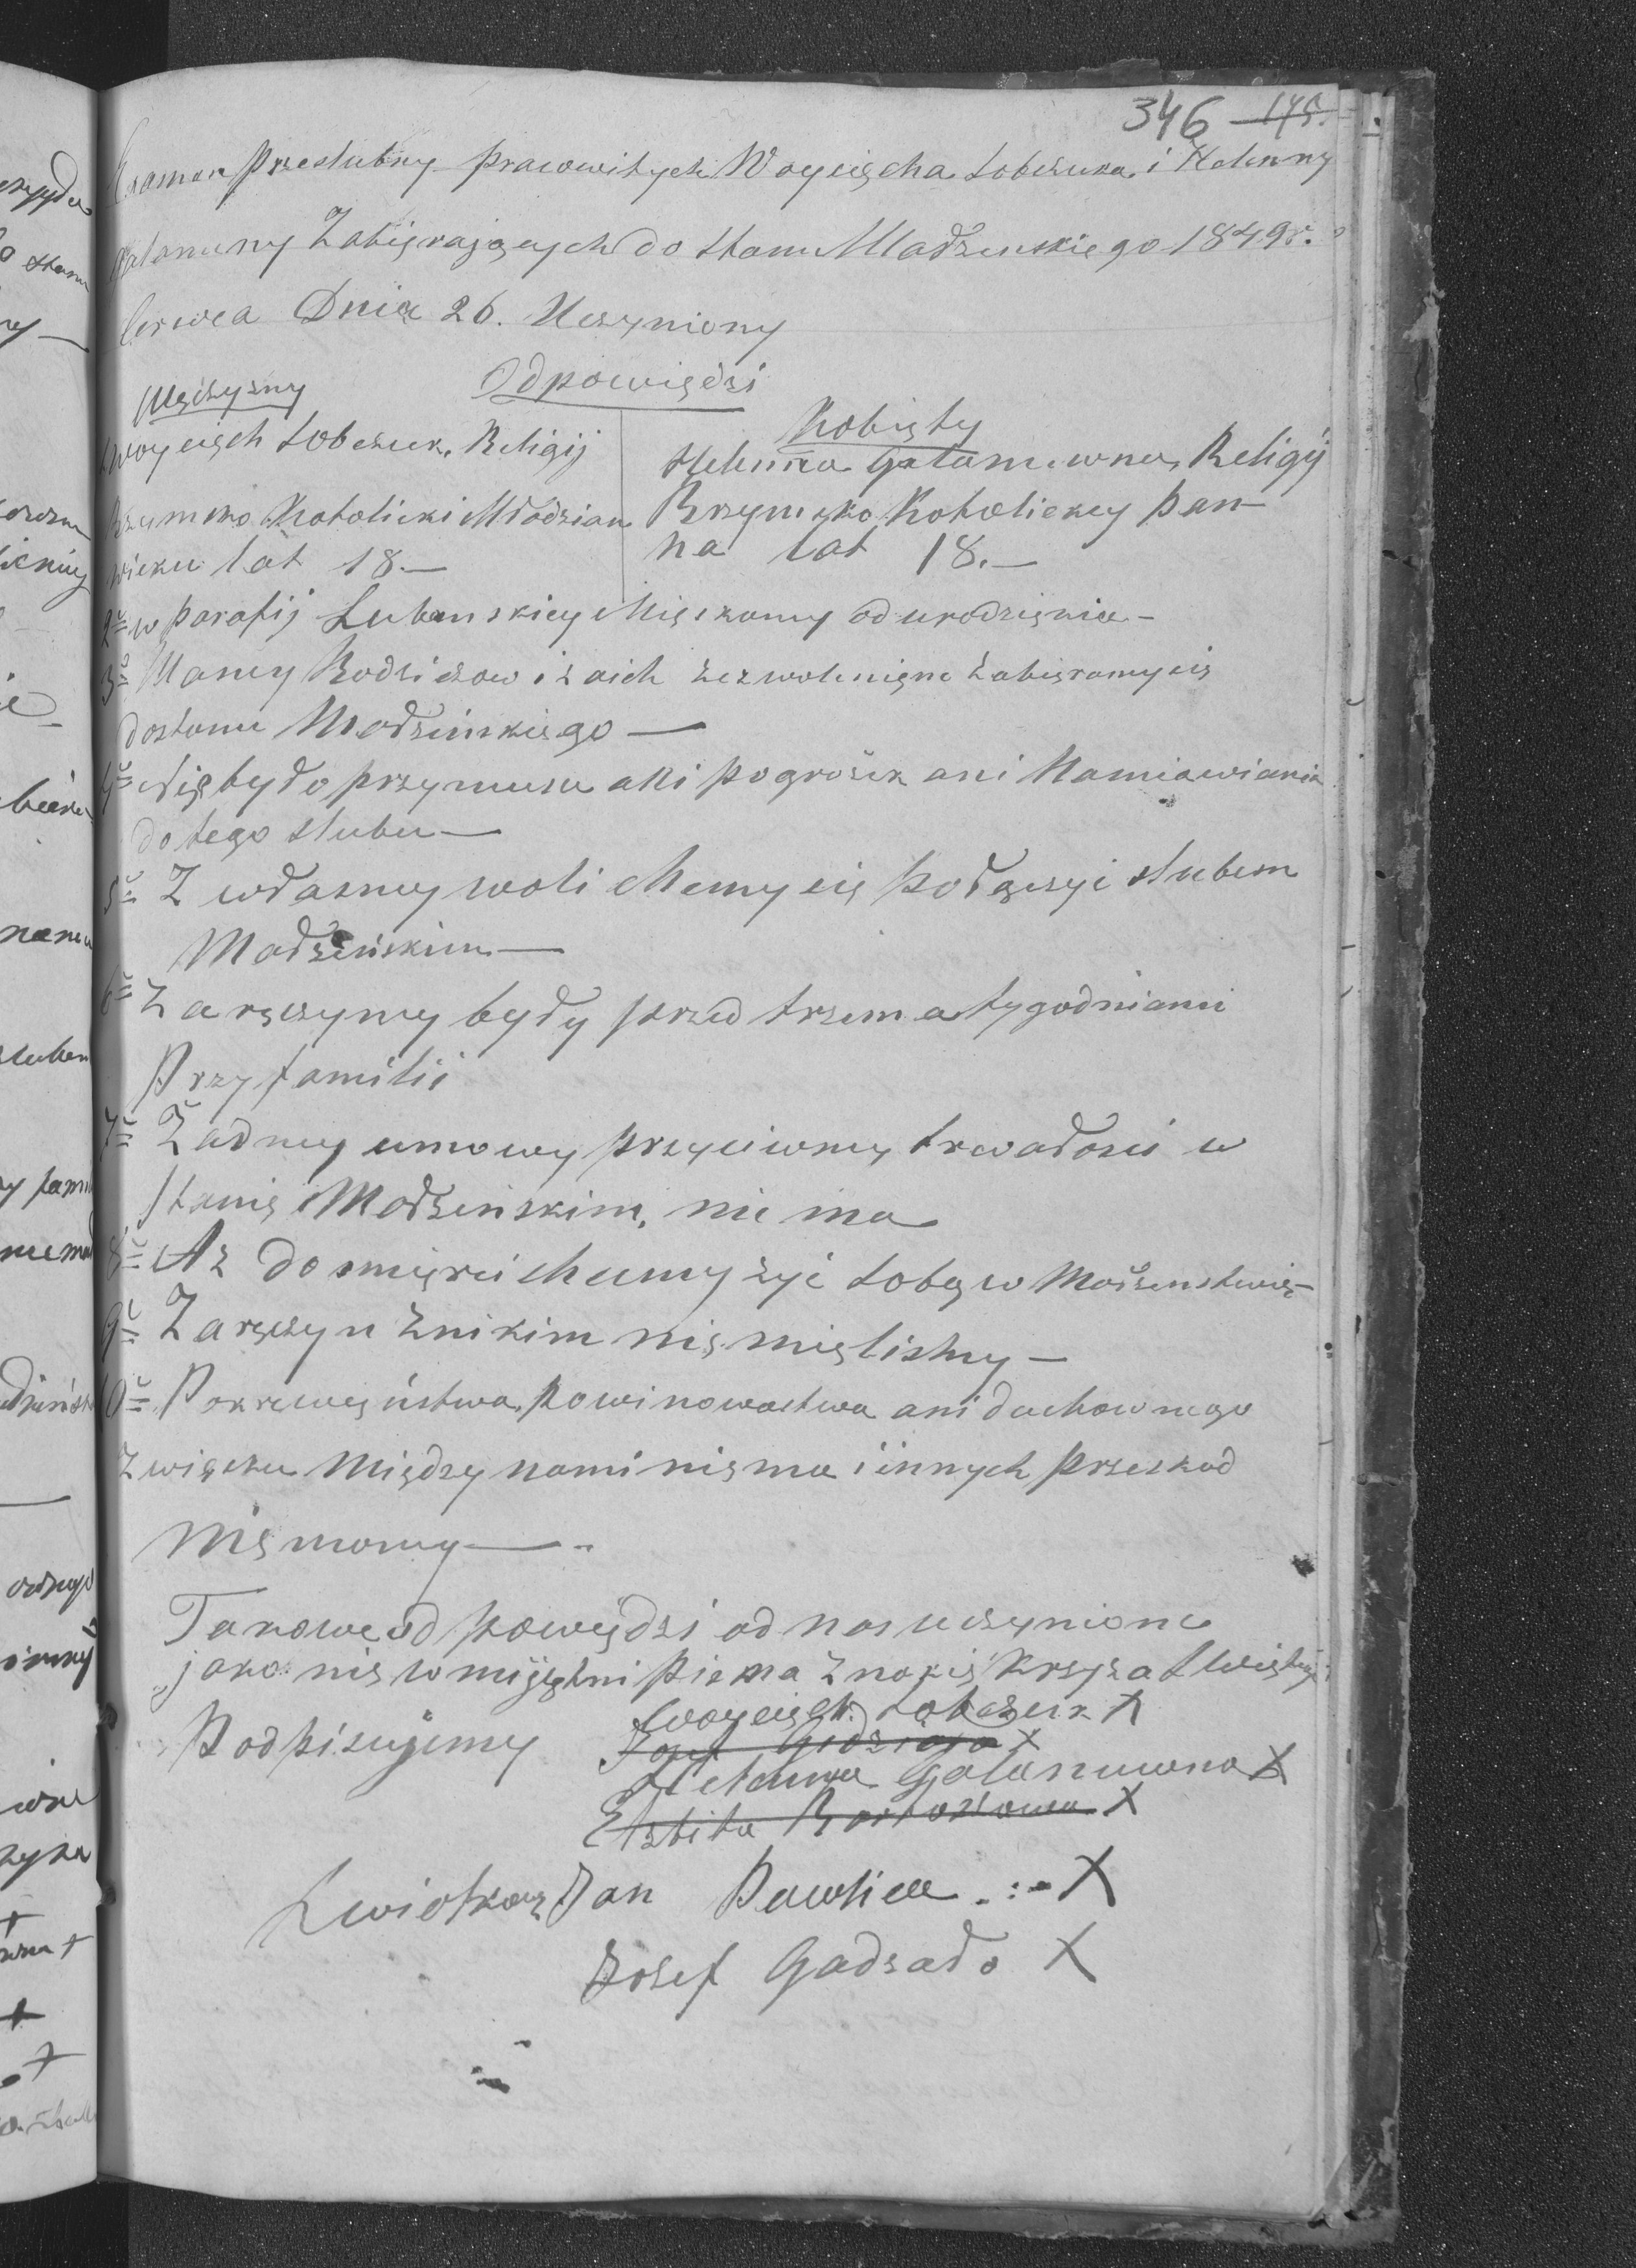 346 175.
Examen Przeslubny prawowitych Woyciecha Łobczuka i Helenny
Gałanuny Zabięraiących do stanu Małdzenskiego 1849 r.
Cerwca Dnia 26. Uczyniony
Odpowiędzi
Męsczyzny
Kobięty
Woyciech Łobczuk, Religij
Rzymsko Katolicki Młodzian
wieku lat 18.—
Helenna Gałanuwna, Religij
Rzymsko Katolickiy Pan-
na lat 18.—
2 w parafij Lubanskiey Mięszkamy od urodzięnia—
3 Mamy Rodziców i zaich zezwolenięm zabięramy się
do stanu Małdzinskiego —
4 Nię było przymusu ani pogrożek ani Namiawiania
do tego slubu—
5 Z własney woli Chcemy się połączyć slubem
Małdzeńskim—
6 Zaręczymy były przed trzema tygodniami
Przy familii
7 Żadney umowy przyciwney trwałosci w
stanię Małdzeńskim, nie ma
8 Aż do smięrci chcemy zyć sobą w Małzenstwię—
9 Zaręczyn z nikim nię mięlismy—
10 Pokrewięństwa, powinowactwa ani duchownego
Związku między nami nięma i innych przeszkod
nięmamy—
Takowe odpowiędzi od nas uczynione
jako nię umijętni pisma znakię Krzyża Swiętego
Podpisujemy
Woycięch Łobczuk X
Helenna Gałanuwna X
Elzbita X
Swiatkowie Jan Pawlica X
Jozef Gadzało X